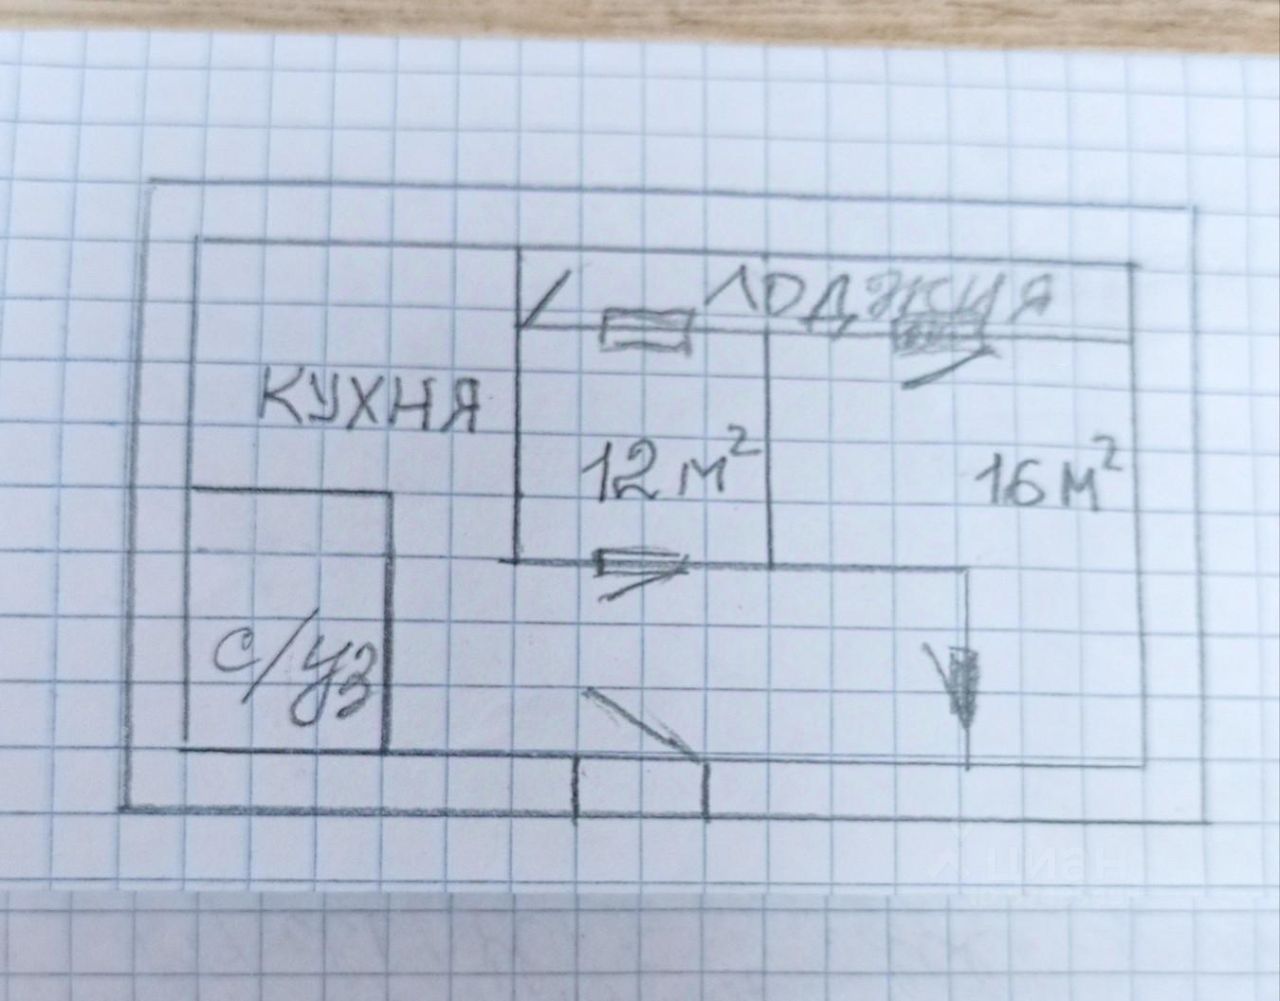 ЛОДЖИЯ
КУХНЯ
12 м²
16 м²
с/уз
циан